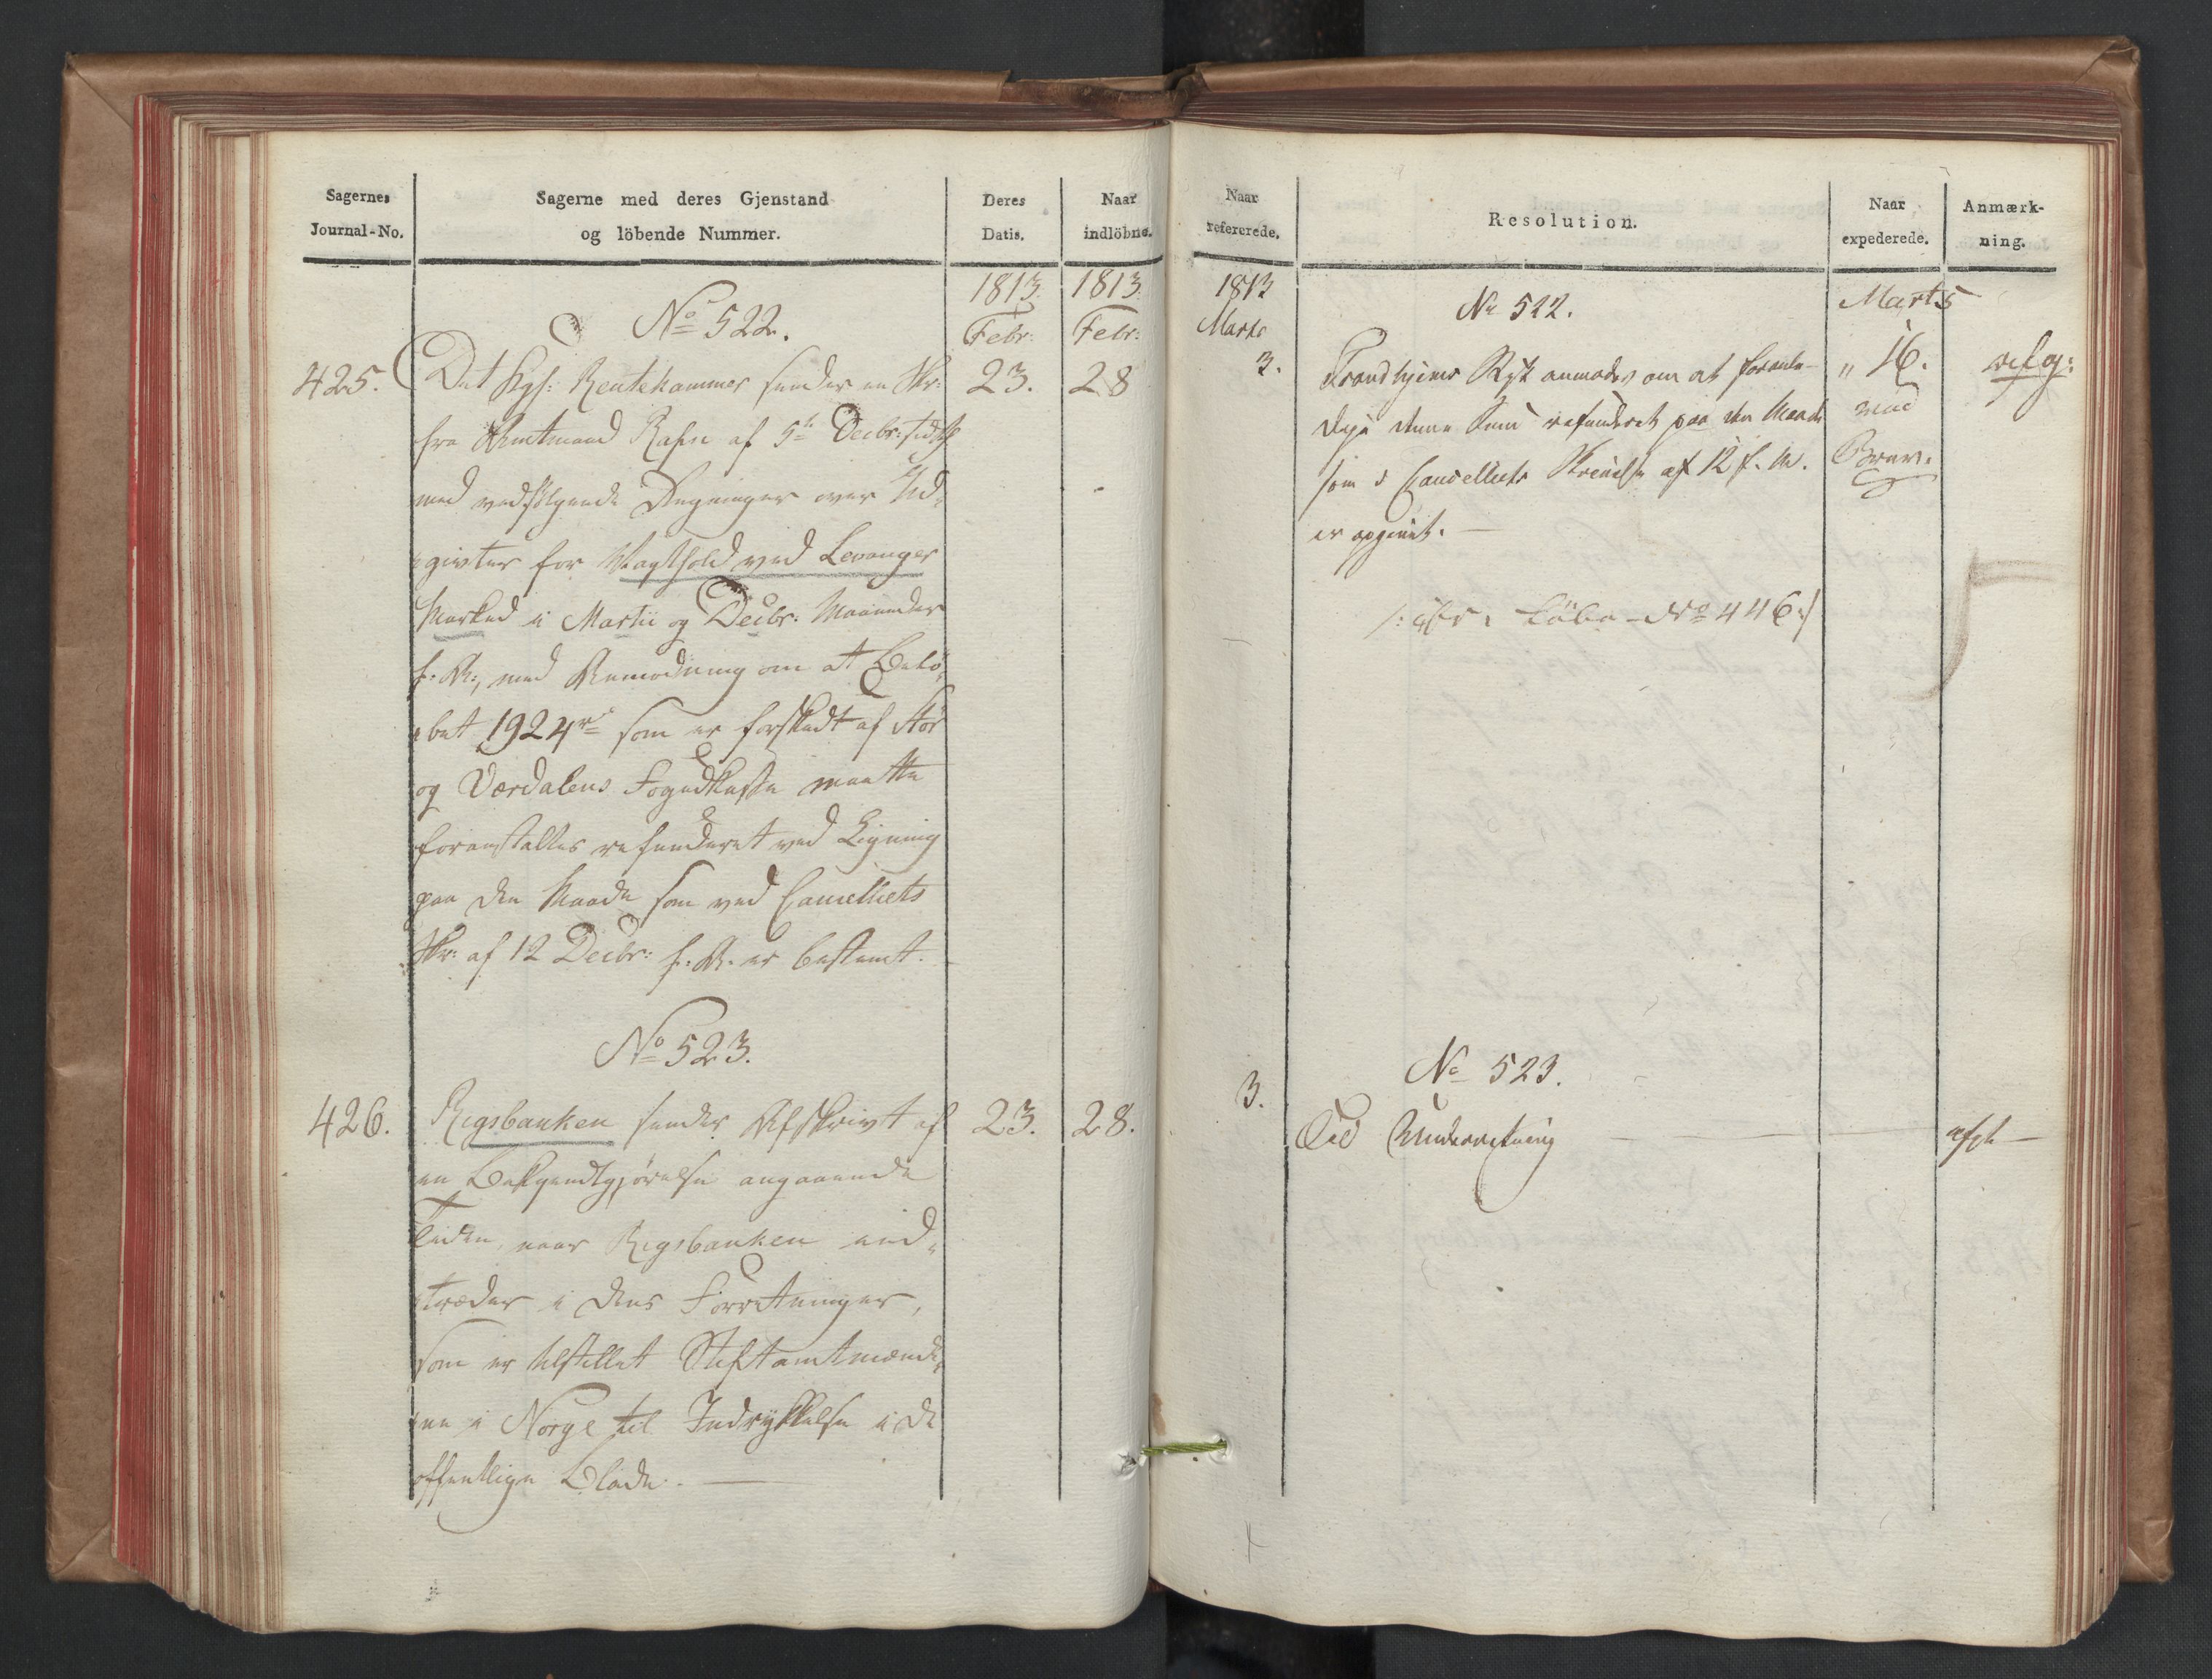 Sagernes
Journal-No.
Sagerne med deres Gjenstand
og löbende Nummer.
Deres
Datis.
Naar
indlöbne.
1813.
Febr:
1813.
Febr:
No 522.
425.
Det Kgl: Rentekammer sender en Skr:
23.
28
fra Amtmand Rafn af 5te Decbr: sidstl
med vedfölgende Regninger over Ud-
givter for Vagthold ved Levanger
Marked i Martii og Decbr: Maaneder
f: A:, med Anmodning om at Belö-
bet 1924 rd som er forskudt af Stör
og Værdalens Fogedkasse maatte
foranstaltes refunderet ved Ligning
paa den Maade som ved Cancelliets
Skr: af 12 Decbr: f: A. er bestemt.
No 523.
426.
Rigsbanken sender Afskrivt af
23.
28.
en Bekjendtgjörelse angaaende
Tiden, naar Rigsbanken ind-
træder i dens Forretninger,
som er tilstillet Stiftamtmænde-
ne i Norge til Indrykkelse i de
offentlige Blade.
Naar
refererede.
Resolution.
Naar
expederede.
Anmærk-
ning.
1813
Marts
No 522.
Marts
3.
Trondhjems anmodes om at foranle-
" 16.
dige denne Sum refunderet paa den Maade
med
som i Cancelliets Skrivelse af 12 f. M.
Brev.
er opgivet.
/: cfr. Löbe-No 446 :/
No 523.
3.
Til Underretning